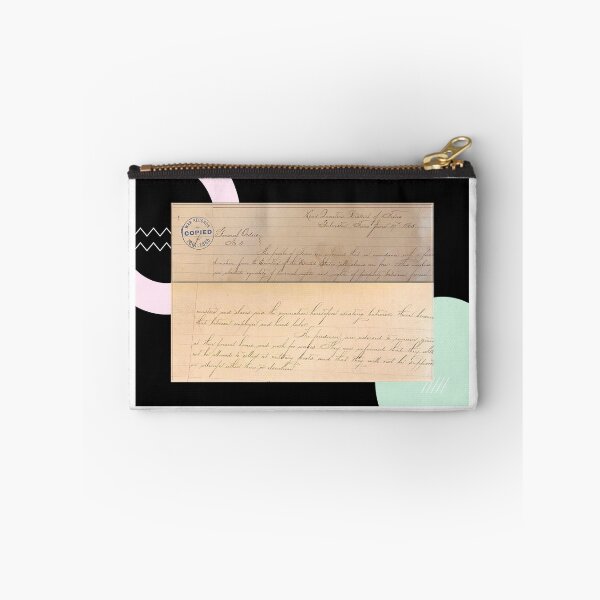 Head Quarters District of Texas
Galveston Texas June 19th 1865.
WAR RECORDS
COPIED
1861-1865
General Orders
No. 3.
The people of are informed that in accordance with a
from the Executive of the United States all slaves are free. This involves
equality of personal rights and rights of property between former
masters and slaves and the connection heretofore existing between them becomes
that between employer and hired labor.
The freedmen are advised to remain quietly
at their present homes and work for wages. They are informed that they will
not be allowed to collect at military posts and that they will not be supported
in idleness either there or elsewhere